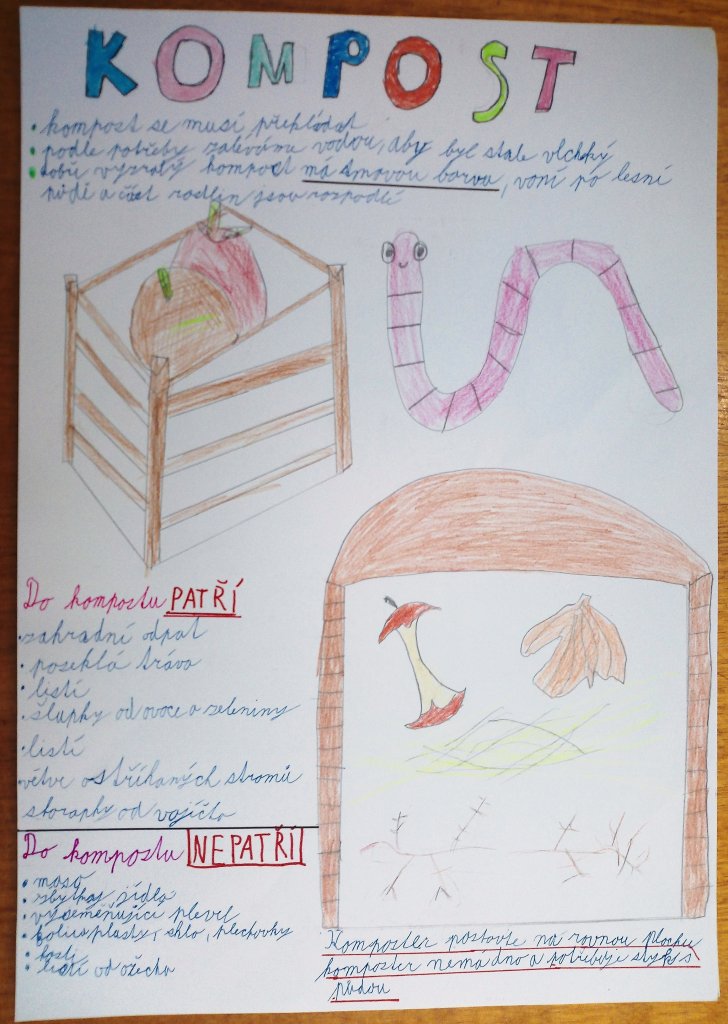 KOMPOST
• kompost se musí přehládat
• podle potřeby zaléváme vodou, aby byl stále vlhký
• dobře vyzralý kompost má tmavou barvu, voní po lesní
půdě a část rostlin jsou rozpadlé
Do kompostu PATŘÍ
• zahradní odpat
• poseklá tráva
• listí
• šlupky od ovoce a zeleniny
• listí
• větve ostříhaných stromů
skořápky od vajíčka
Do kompostu NEPATŘÍ
• maso
• zbytky jídla
• vysemeňující plevel
plasty, sklo, plechovky
• kosti
• listí od ořechu
Kompostér postavte na rovnou plochu
kompostér nemá dno a potřebuje styk s
půdou